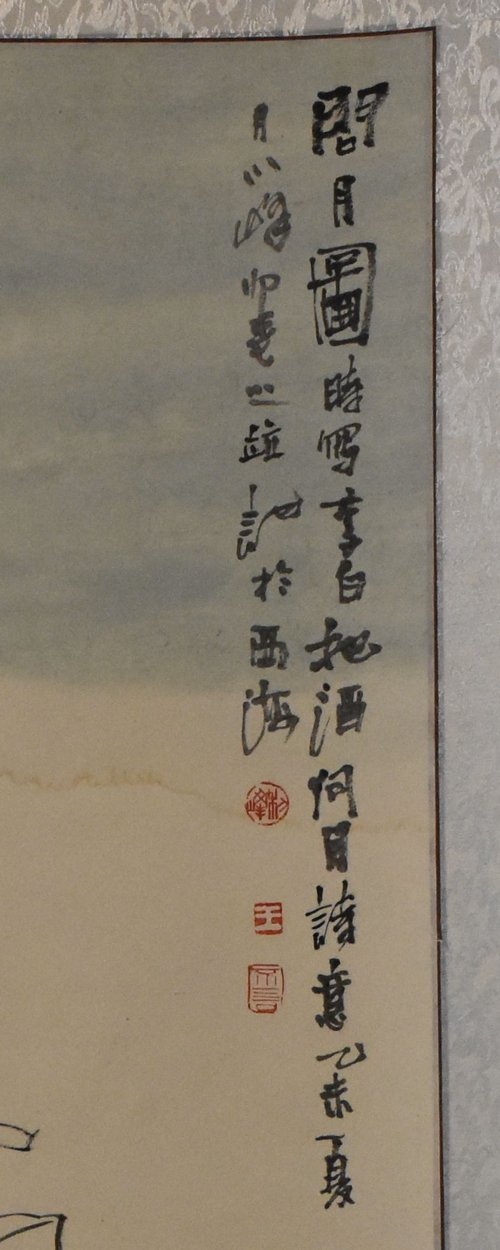 問月圖時寫李白把酒問月詩意乙未夏
月峰並記於西海
峰
王